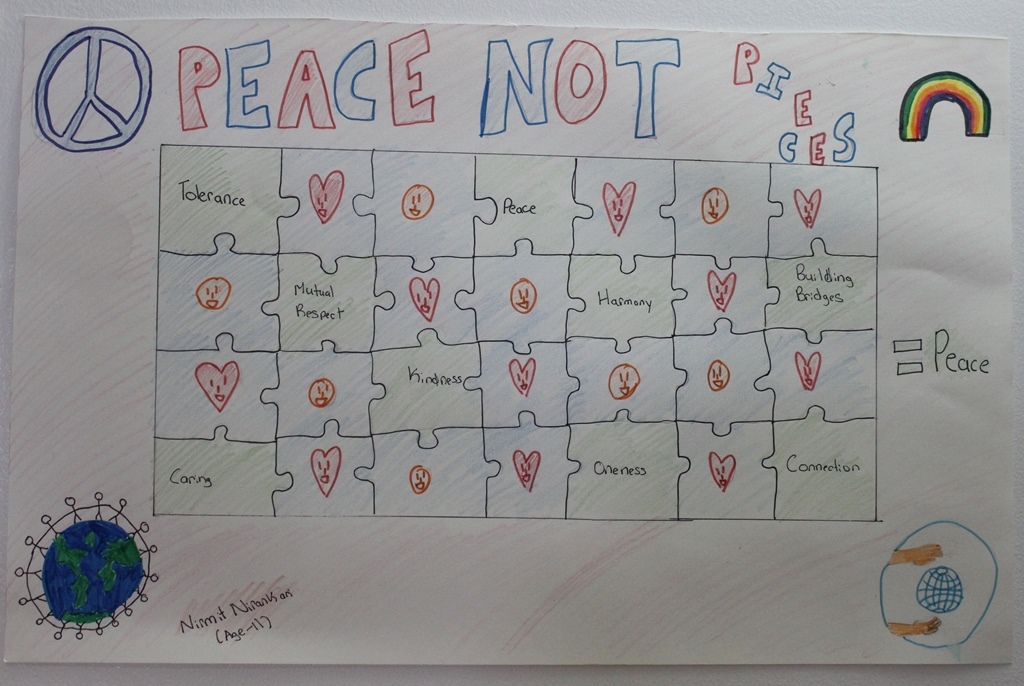 PEACE NOT PIECES
Tolerance
Peace
Mutual
Respect
Harmony
Building
Bridges
Kindness
= Peace
Caring
Oneness
Connection
Nirmit Nirankari
(Age-11)